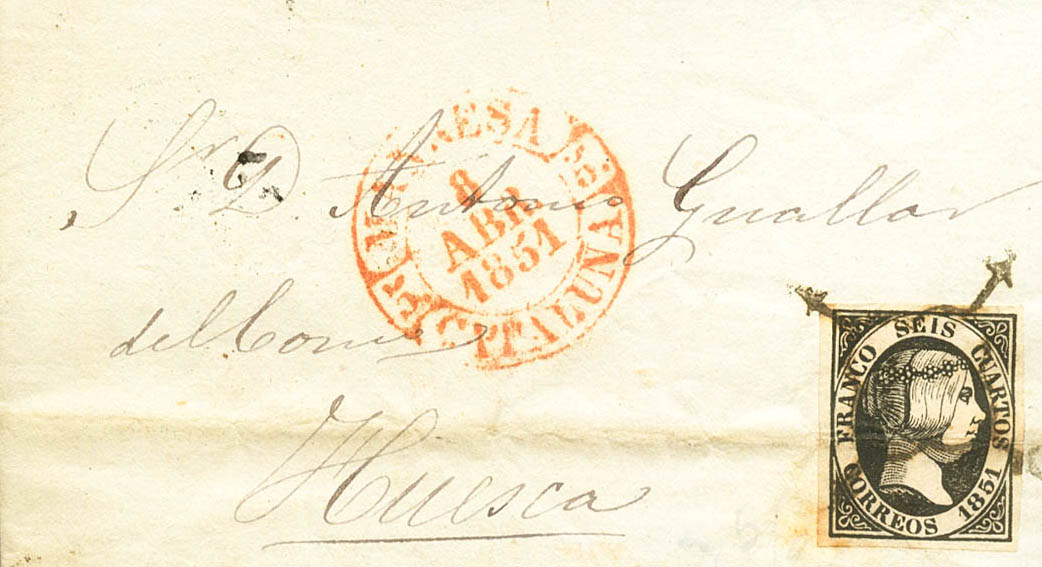 MANRESA
8
ABR
1851
CATALUNA
Sr D. Antonio Guallar
del
Huesca
FRANCO SEIS CUARTOS
CORREOS 1851